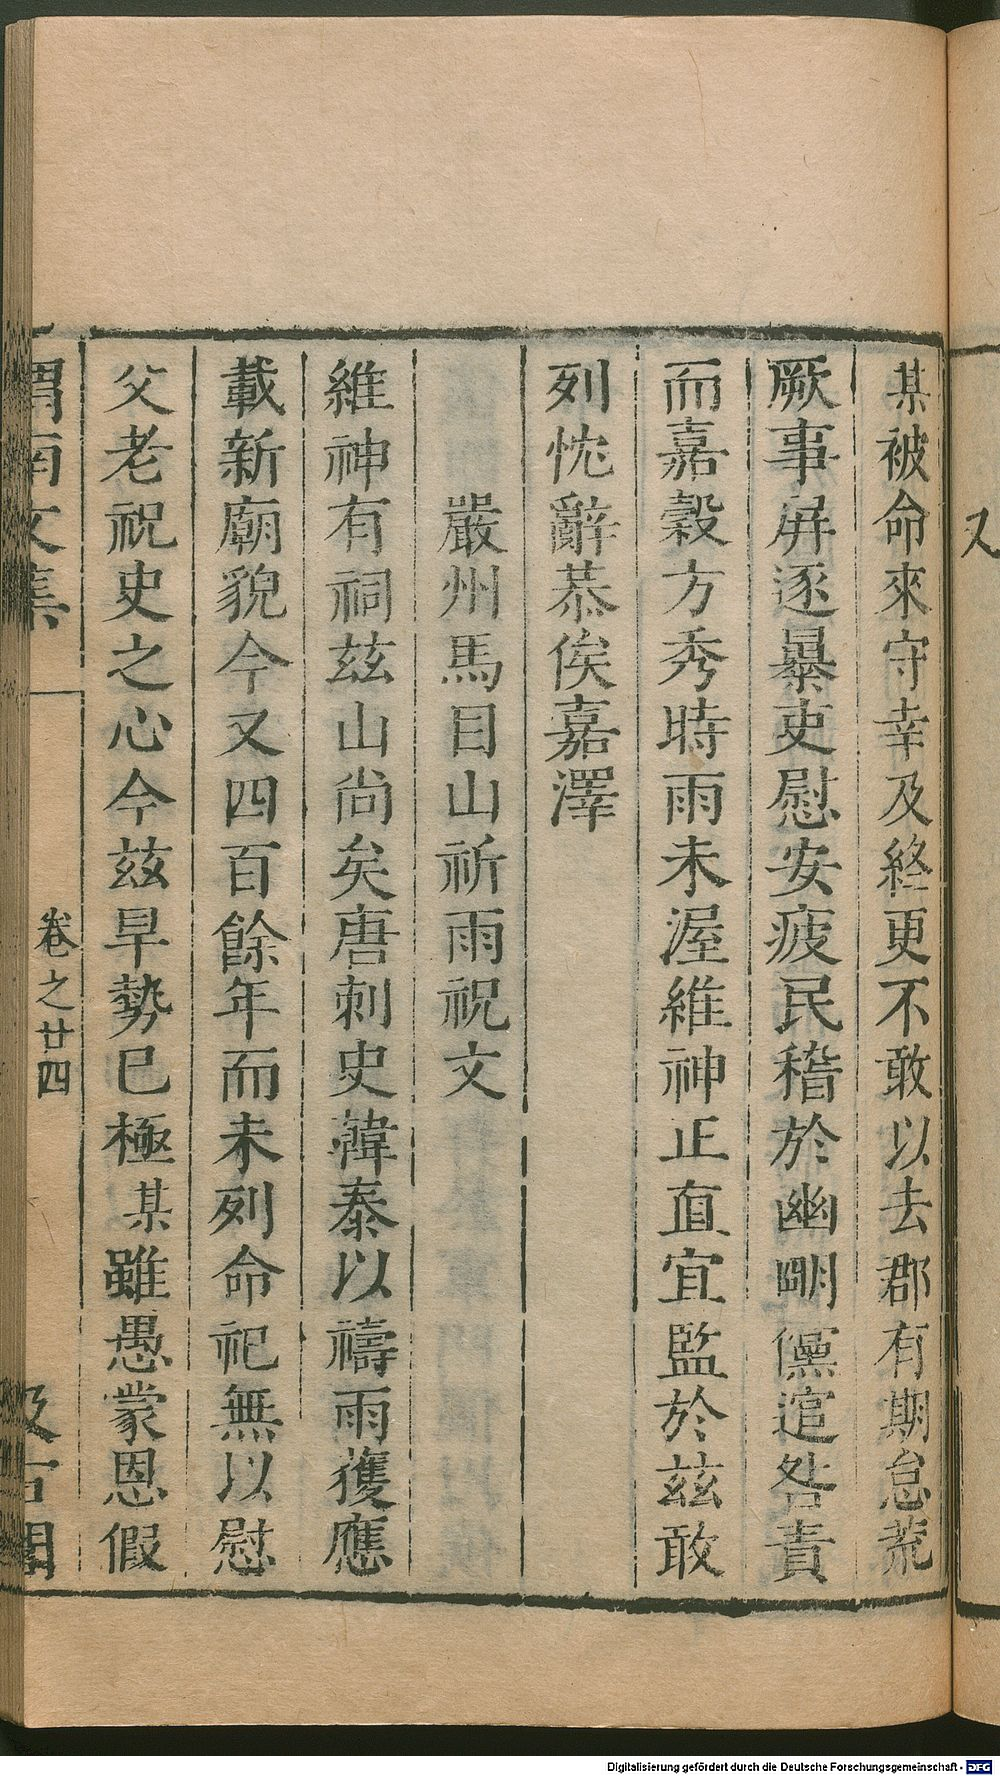 又
某被命來守幸及終更不敢以去郡有期怠荒
厥事屏逐暴吏慰安疲民稽於幽明儻逭咎責
而嘉穀方秀時雨未渥維神正直宜監於兹敢
列忱辭恭俟嘉澤
嚴州馬目山祈雨祝文
維神有祠兹山尚矣唐刺史韓泰以禱雨獲應
載新廟貌今又四百餘年而未列命祀無以慰
父老祝史之心今兹旱勢已極某雖愚蒙恩假
渭南文集
卷之廿四
汲古閣
Digitalisierung gefördert durch die Deutsche Forschungsgemeinschaft - DFG